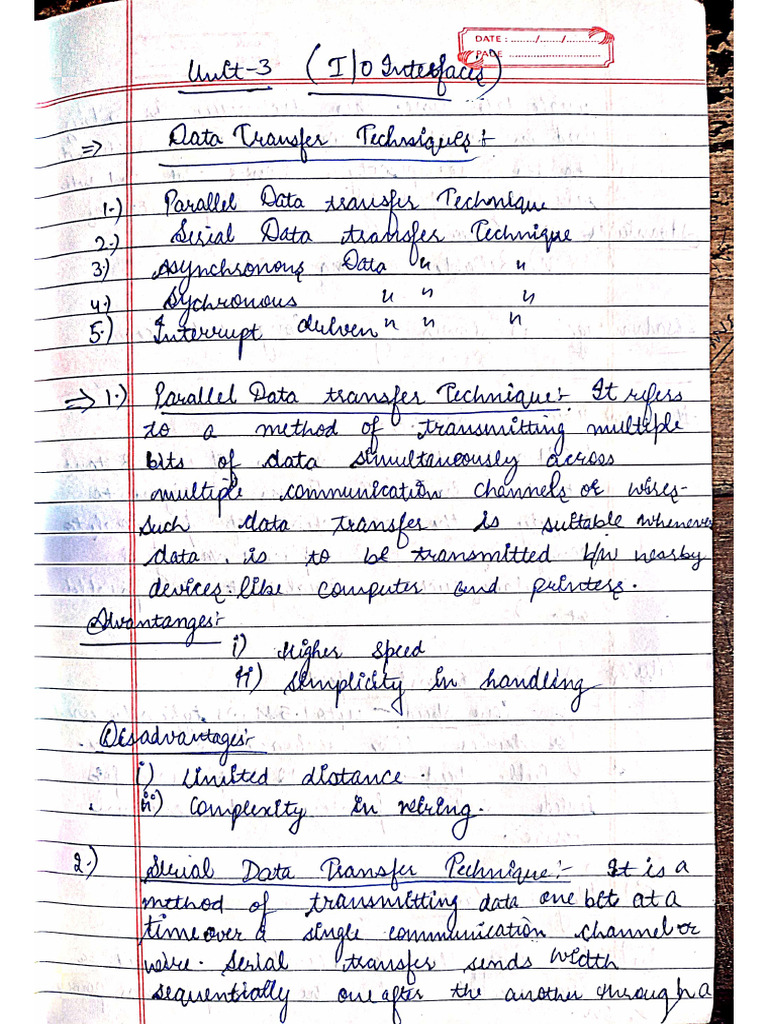 DATE : ......../......../........
PAGE ..............................
Unit-3 (I/O Interfaces)
=> Data Transfer Techniques:-
1.) Parallel Data transfer Technique
2.) Serial Data transfer Technique
3.) Asynchronous Data " "
4.) Sychronous " " "
5.) Interrupt driven " " "
=> 1.) Parallel Data transfer Technique:- It refers
to a method of transmitting multiple
bits of data simultaneously across
multiple communication channels or wires-
such data transfer is suitable whenever
data is to be transmitted b/w nearby
devices like computer and printers.
Advantanges:-
i) Higher speed
ii) Simplicity in handling
Disadvantages:-
i) Limited distance.
ii) Complexity in wiring.
2.) Serial Data Transfer Technique:- It is a
method of transmitting data one bit at a
time over a single communication channel or
wire. Serial transfer sends width
sequentially one after the another through a